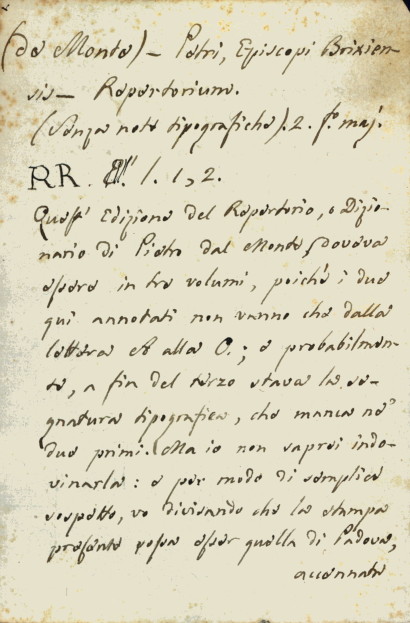 (da Monte) – Petri, Episcopi Brixien-
sis – Repertorium.
(Senza note tipografiche). 2. f.º maj.
RR. 1. 1, 2.
Quest' Edizione del Repertorio, o Dizio-
nario di Pietro dal Monte, doveva
essere in tre volumi, poichè i due
qui annotati non vanno che dalla
lettera A alla O.; e probabilmen-
te, a fin del terzo stava la se-
gnatura tipografica, che manca ne'
due primi. Ma io non saprei indo-
vinarla: e per modo di semplice
sospetto, vo divisando che la stampa
presente possa esser quella di Padova,
accennata